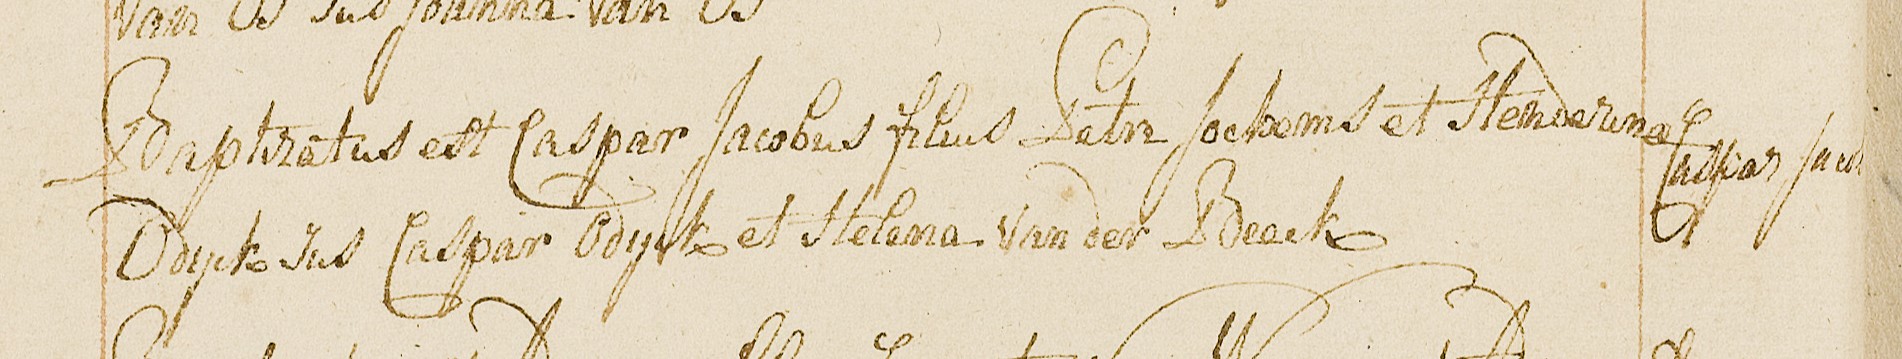 van Os sus Joanna van Os
Baptizatus est Caspar Jacobus filius Petri Jochems et Henderina
Caspar Jacob
Odijck sus Caspar Odyck et Helena van der Beeck